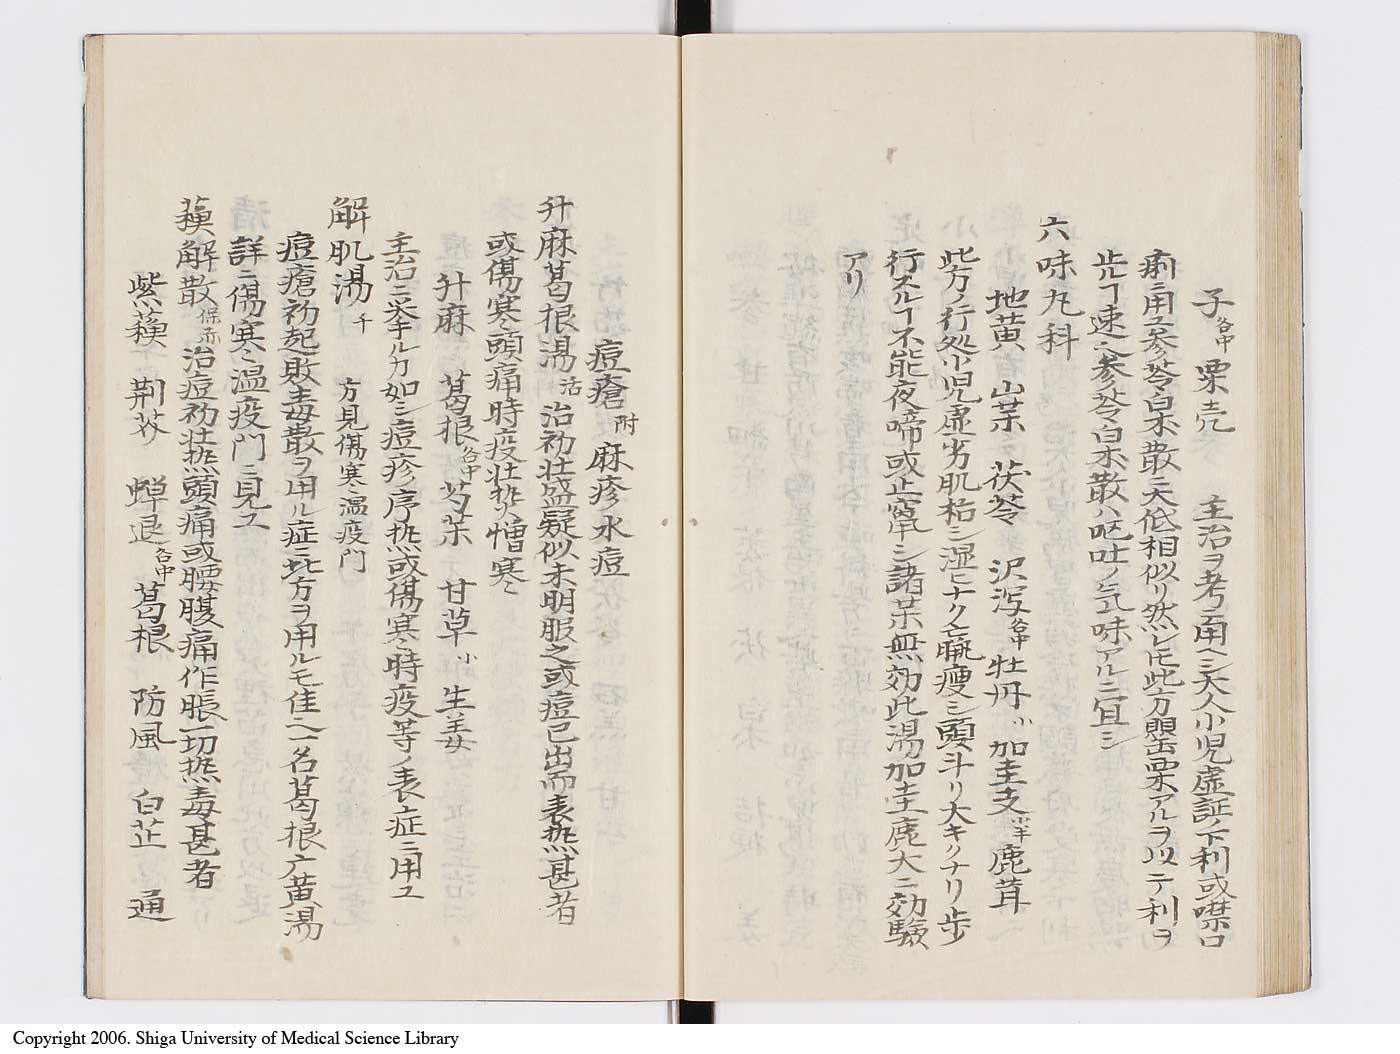 子各中 粟壳 主治ヲ考ヱ用ヘシ大人小児虚証ノ下利或噤口
痢ニ用ヱ参苓白朮散ニ大低相似リ然レ𪜈此方罌粟アルヲ以テ利ヲ
止ヿ速ニ参苓白朮散ハ呕吐ノ気味アルニ宜シ
六味丸科
地黄 山茱 茯苓 沢瀉各中 牡丹小 加圭支小半 鹿茸
此方ノ行処小児虚劣肌枯シ湿ヒナク亡羸痩シ頭斗リ大キクナリ歩
行スルヿ不能夜啼或止窜シ諸茱無効此湯加圭鹿大ニ効驗
アリ
痘瘡附麻疹水痘
升麻葛根湯活 治初壮盛疑似未明服之或痘已出而表熱甚者
或傷寒頭痛時疫壮熱憎寒
升麻 葛根各中 芍茱 甘草小 生姜
主治ニ挙ルカ如シ痘疹序熱或傷寒時疫等ノ表症ニ用ユ
解肌湯千 方見傷寒温疫門
痘瘡初起敗毒散ヲ用ル症ニ此方ヲ用ルモ佳シ一名葛根广黄湯
詳ニ傷寒温疫門ニ見エ
蘓解散保赤 治痘初壮熱頭痛或腰腹痛作脹一切熱毒甚者
紫蘓 荆芥 蝉退各中 葛根 防風 白芷 通
Copyright 2006. Shiga University of Medical Science Library